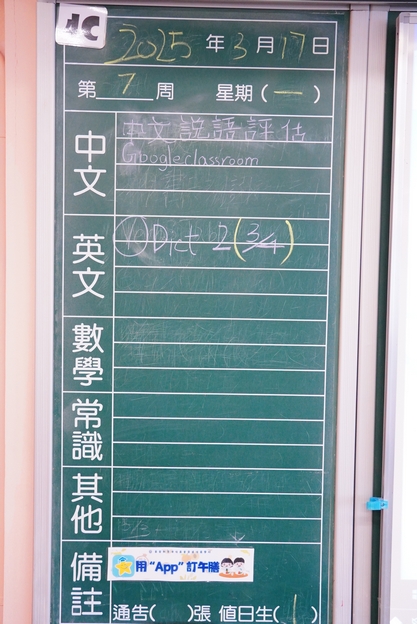 4C
2025年3月17日
第7周 星期(一)
中文
中文説語評估
Google classroom
英文
① Dict 2 (3/4)
數學
常識
其他
備註
用“App”訂午膳
通告( )張 值日生(1)